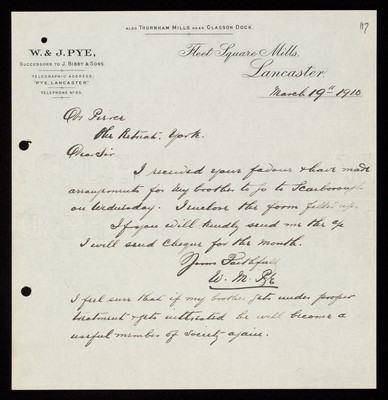 ALSO THURNHAM MILLS NEAR GLASSON DOCK.
117
W. & J. PYE,
SUCCESSORS TO J. BIBBY & SONS.
TELEGRAPHIC ADDRESS,
"PYE, LANCASTER."
TELEPHONE No 65.
Fleet Square Mills,
Lancaster,
March 19th 1910
Dr Pierce
The Retreat. York.
Dear Sir
I received your favour & have made
arrangements for my brother to go to Scarborough
on Wednesday. I enclose the form filled up.
If you will kindly send me the
I will send Cheque for the month.
Yours Faithfully
W. M. Pye
I feel sure that if my brother gets under proper
treatment & gets interested he will become a
useful member of Society again.